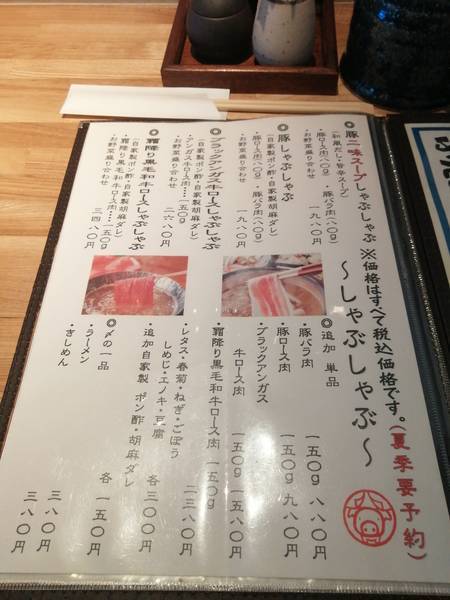 〜しゃぶしゃぶ〜
※価格はすべて税込価格です。(夏季要予約)
◎豚二味スープしゃぶしゃぶ
(和風だし・旨辛スープ)
・豚ロース肉(80g)・豚バラ肉(80g)
・お野菜盛り合わせ
一九八〇円
◎豚しゃぶしゃぶ
(自家製ポン酢・自家製胡麻ダレ)
・豚ロース肉(80g)・豚バラ肉(80g)
・お野菜盛り合わせ
一九八〇円
◎ブラックアンガス牛ロースしゃぶしゃぶ
(自家製ポン酢・自家製胡麻ダレ)
・アンガス牛ロース肉…一五〇g
・お野菜盛り合わせ
二六八〇円
◎霜降り黒毛和牛ロースしゃぶしゃぶ
(自家製ポン酢・自家製胡麻ダレ)
・霜降り黒毛和牛ロース肉…一五〇g
・お野菜盛り合わせ
三四八〇円
◎追加 単品
・豚バラ肉 一五〇g 八八〇円
・豚ロース肉 一五〇g 九八〇円
・ブラックアンガス
牛ロース肉 一五〇g 一五八〇円
・霜降り黒毛和牛ロース肉 一五〇g
二三八〇円
・レタス・春菊・ねぎ・ごぼう
しめじ・エノキ・豆腐
各三〇〇円
・追加自家製 ポン酢・胡麻ダレ
各一五〇円
◎〆の一品
・ラーメン 三八〇円
・きしめん 三八〇円